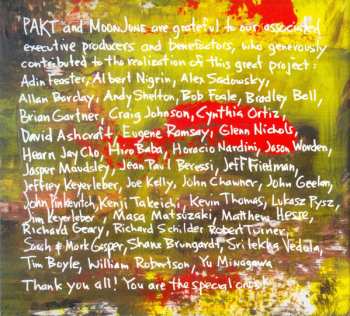 PAKT and MOONJUNE are grateful to our associated
executive producers and benefactors, who generously
contributed to the realization of this great project:
Adin Feaster, Albert Nigrin, Alex Sadowsky,
Allan Barclay, Andy Shelton, Bob Fogle, Bradley Bell,
Brian Gartner, Craig Johnson, Cynthia Ortiz,
David Ashcraft, Eugene Ramsay, Glenn Nichols,
Hearn Jay Cho, Hiro Baba, Horacio Nardini, Jason Worden,
Jasper Maudsley, Jean Paul Beressi, Jeff Frielman,
Jeffrey Keyerleber, Joe Kelly, John Chawner, John Geelan,
John Pinkevitch, Kenji Takeichi, Kevin Thomas, Lukasz Pysz,
Jim Keyerleber, Masa Matsuzaki, Matthew Hesse,
Richard Geary, Richard Schilder, Robert Turner,
& Mark Gasper, Shane Brungardt, Sritekha Vedula,
Tim Boyle, William Robertson, Yu Minagawa
Thank you all! You are the special ones!